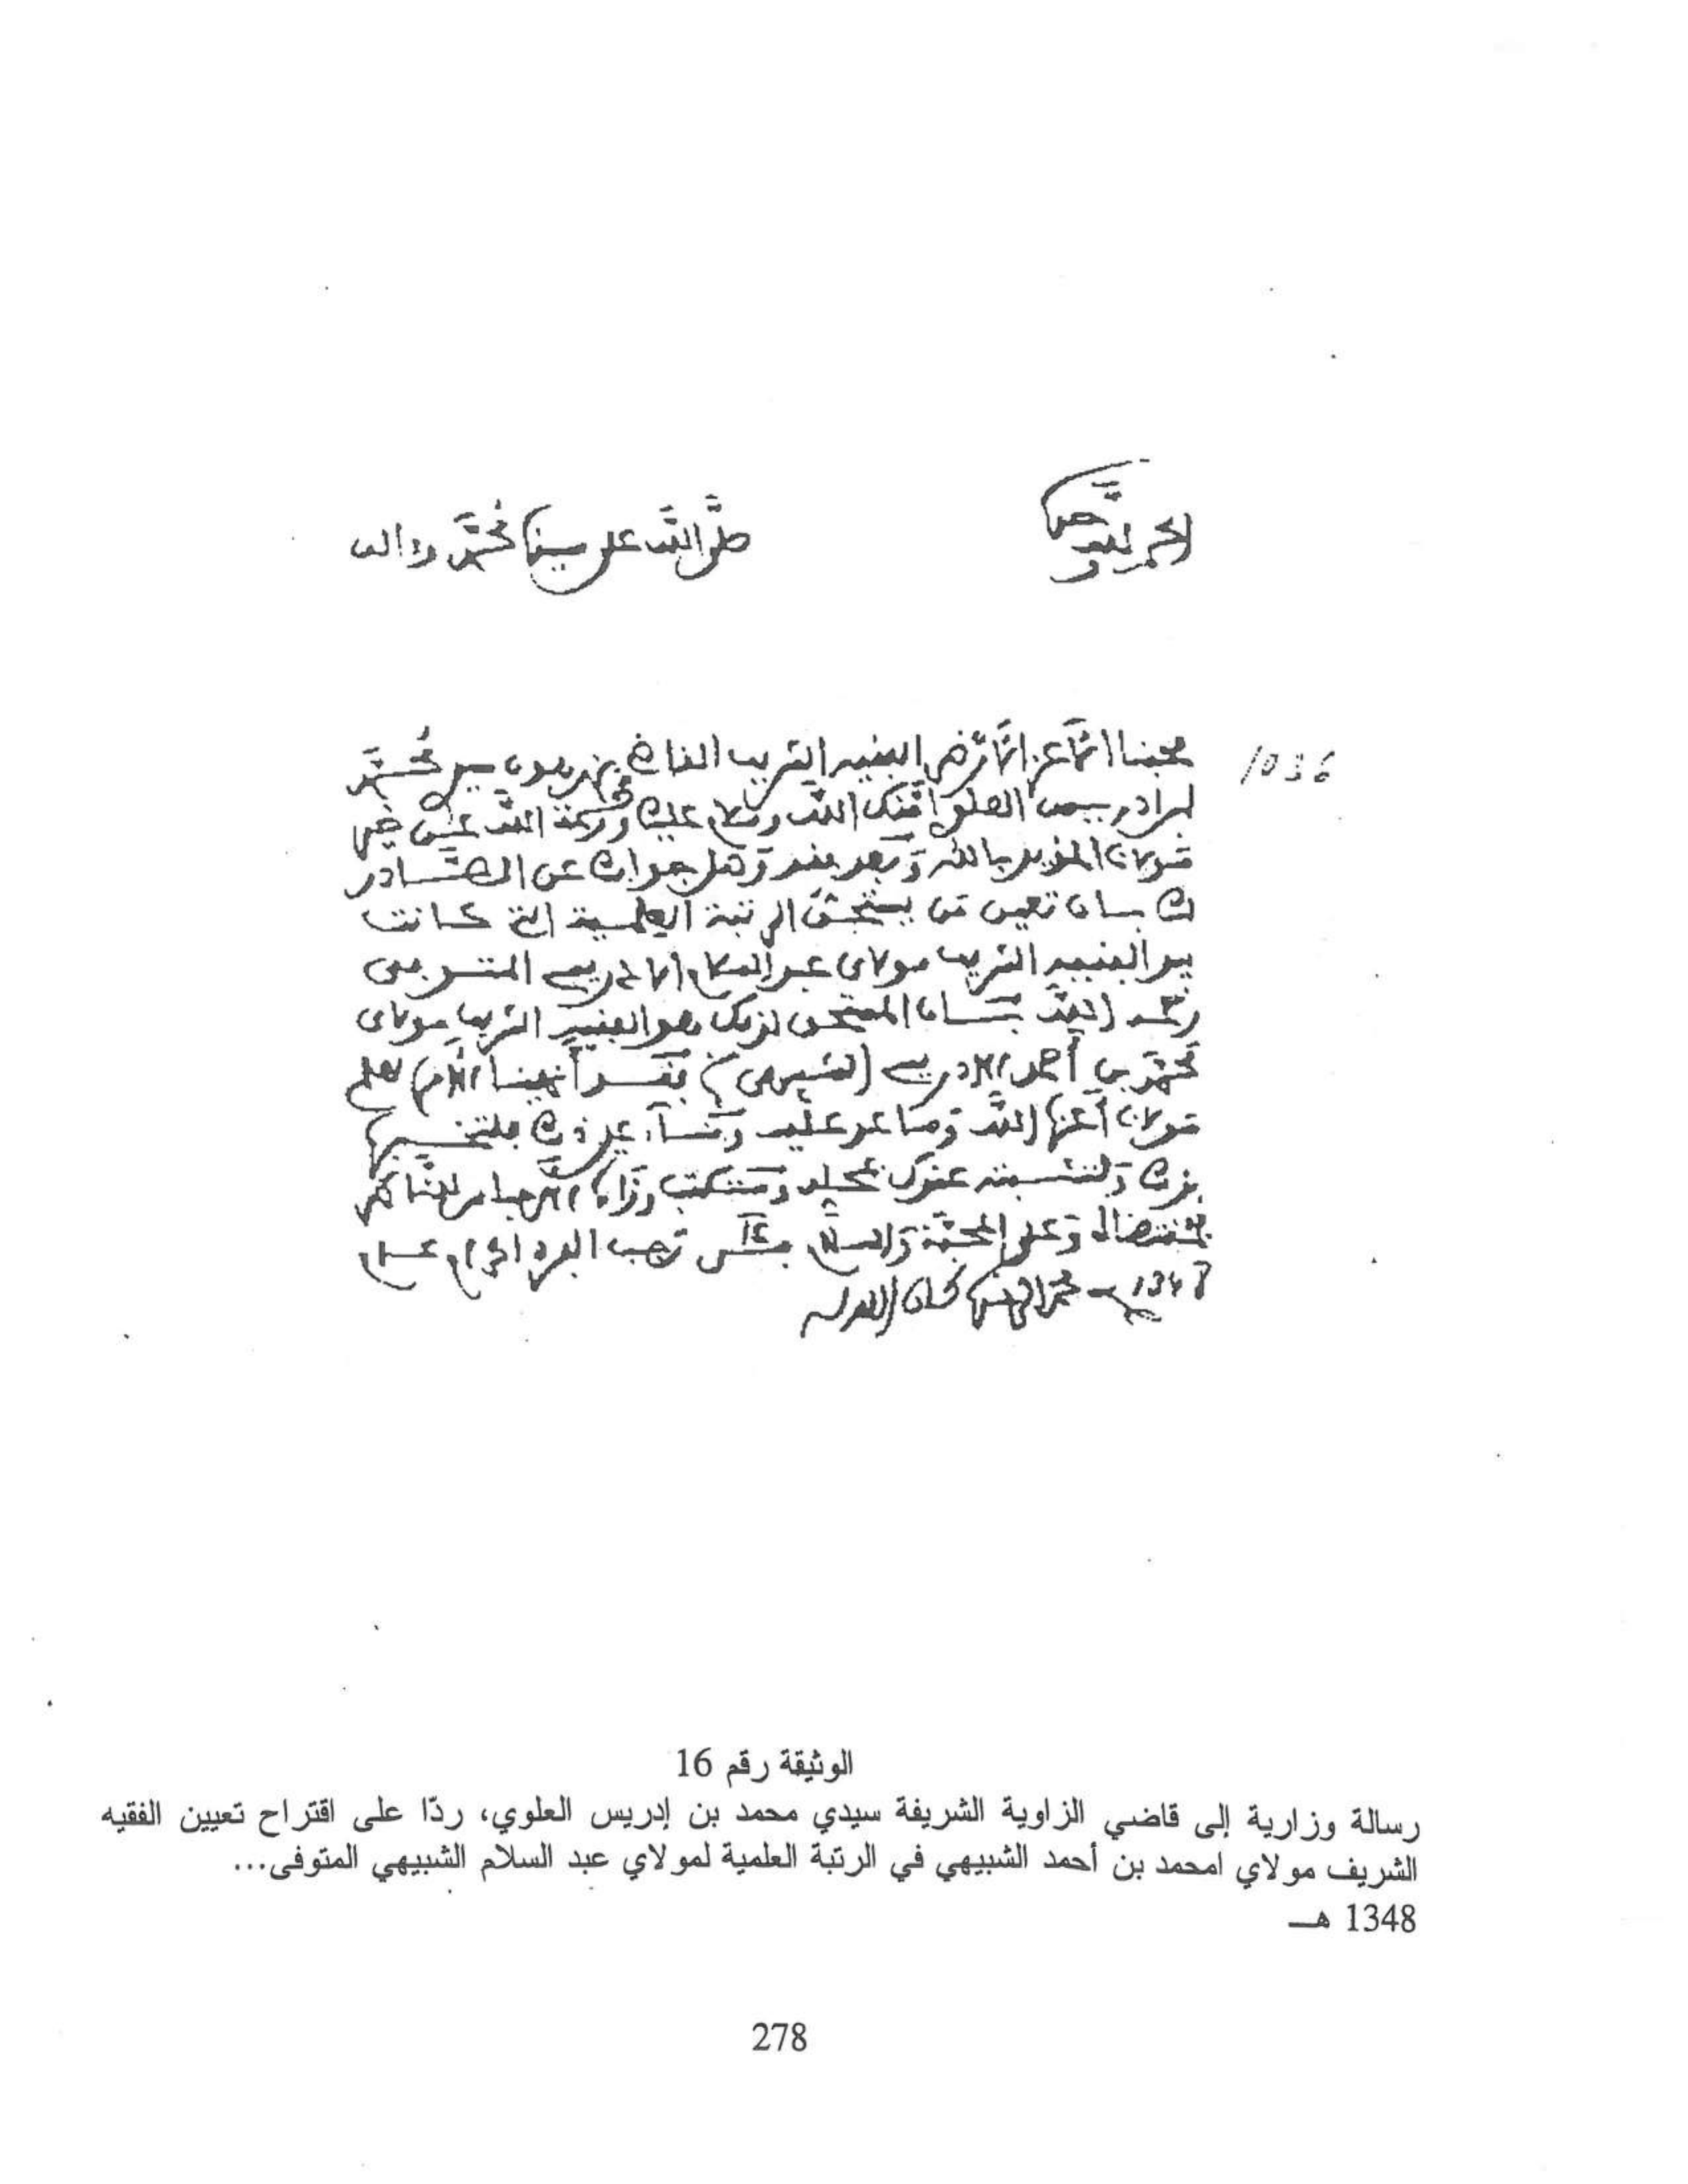 الحمد لله وحده
صلى الله على سيدنا محمد وءاله
1036
محبنا الأعز الأرضى الفقيه الشريف القاضي بزرهون سيدي محمد
بن ادريس العلوي أمنك الله وسلام عليك ورحمة الله عن خير
مولانا المؤيد بالله وبعد فقد وصل جوابك عن الصادر
لك بشان تعيين من يستحق الرتبة العلمية التي كانت
بيد الفقيه الشريف مولاي عبد السلام الادريسي المتوفى
رحمه الله بان المستحق لذلك هو الفقيه الشريف مولاي
محمد بن أحمد الادريسي الشبيهي أنهينا الأمر لعلم
مولانا أعزه الله وساعد عليه
بذلك وستكتب وزارة الاحباس
بمقتضاه وعلى المحبة والسلام في رجب الفرد الحرام عام
1348 محمد المقري
الوثيقة رقم 16
رسالة وزارية إلى قاضي الزاوية الشريفة سيدي محمد بن إدريس العلوي، ردّا على اقتراح تعيين الفقيه
الشريف مولاي امحمد بن أحمد الشبيهي في الرتبة العلمية لمولاي عبد السلام الشبيهي المتوفى...
1348 هـ
278